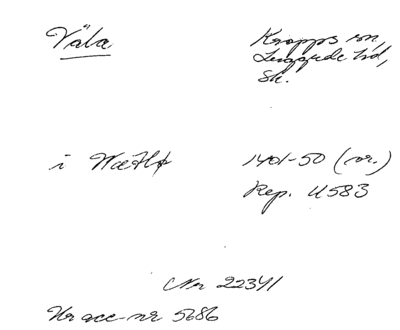 Väla
Kropps sn,
Luggude hd,
Sk.
i Wætlø
1401-50 (or.)
Rep. 4583
Nr 22341
Ur acc-nr 5686